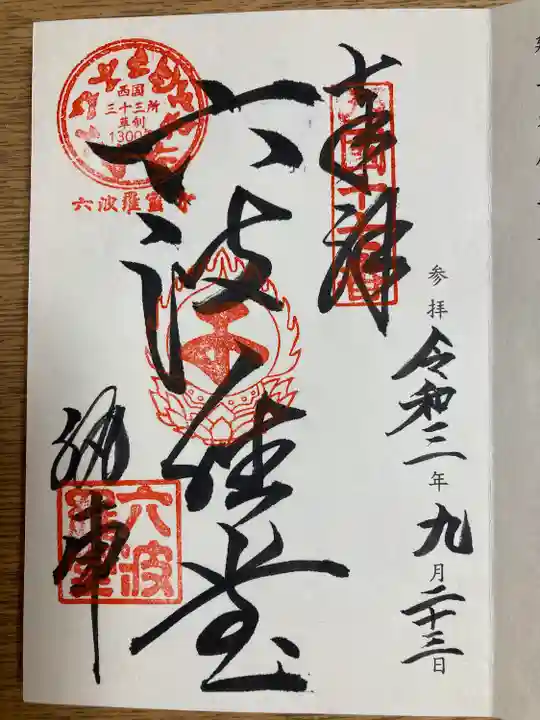 奉拝
西国十七番
参拝 令和三年九月二十三日
六波羅堂
西国
三十三所
草創
1300年
六波羅蜜寺
納車
六波